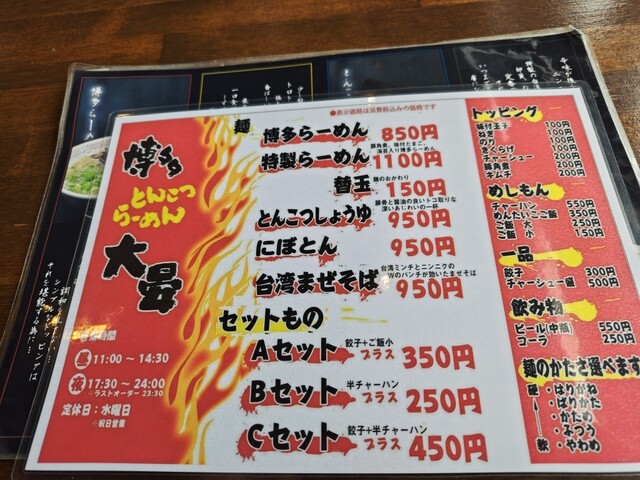 博多らーめん
●表示価格は消費税込みの価格です
博多
とんこつ
らーめん
大昌
営業時間
昼 11:00 ～ 14:30
夜 17:30 ～ 24:00
※ラストオーダー 23:30
定休日：水曜日
※祝日営業
麺
博多らーめん 850円
豚角煮、味付たまご、
海苔入り博多らーめん
特製らーめん 1100円
麺のおかわり
替玉 150円
豚骨と醤油の良いトコ取りな
深いあじわいの一杯
とんこつしょうゆ 950円
にぼとん 950円
台湾ミンチとニンニクの
Wのパンチが効いたまぜそば
台湾まぜそば 950円
セットもの
Aセット 餃子+ご飯小 プラス 350円
Bセット 半チャーハン プラス 250円
Cセット 餃子+半チャーハン プラス 450円
トッピング
味付玉子 100円
ねぎ 100円
のり 100円
きくらげ 100円
チャーシュー 200円
豚角煮 200円
キムチ 200円
めしもん
チャーハン 550円
めんたいこご飯 350円
ご飯 大 250円
ご飯 小 150円
一品
餃子 300円
チャーシュー盛 500円
飲み物
ビール(中瓶) 550円
コーラ 250円
麺のかたさ選べます
硬 ・はりがね
・ばりかた
・かため
・ふつう
軟 ・やわめ
それを堪能する為に…